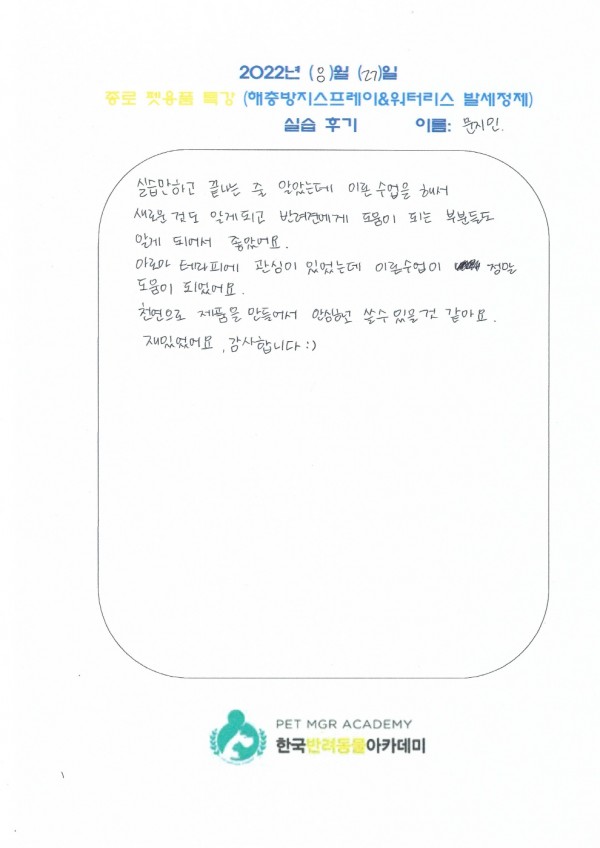 2022년 (8)월 (27)일
종로 펫용품 특강 (해충방지스프레이&워터리스 발세정제)
실습 후기 이름: 문지인.
실습만하고 끝나는 줄 알았는데 이론 수업을 해서
새로운 것도 알게되고 반려견에게 도움이 되는 부분들도
알게 되어서 좋았어요.
아로마 테라피에 관심이 있었는데 이론수업이 정말
도움이 되었어요.
천연으로 제품을 만들어서 안심하고 쓸수 있을것 같아요.
재밌었어요, 감사합니다 :)
PET MGR ACADEMY
한국반려동물아카데미